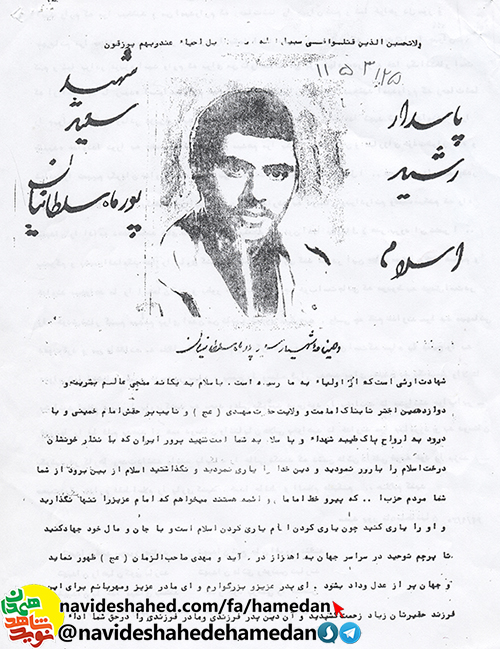 ولاتحسبن الذین قتلوافی سبیل الله بل احیاء عندربهم یرزقون
۱۱۵۳۱۲۵
شهید
سعید
پورماه سلطانیان
پاسدار
رشید
اسلام
وصیتنامه شهید سعید پورماه سلطانیان
شهادت ارثی است که از اولیاء به ما رسیده است . باسلام به یگانه منجی عالم بشریت و
دوازدهمین اختر تابناک امامت و ولایت حضرت مهدی ( عج ) و نایب بر حقش امام خمینی و با
درود به ارواح پاک طیبه شهداء و با سلام به شما امت شهید پرور ایران که با نثار خونشان
درخت اسلام را بارور نمودید و دین خدا را یاری نمودید و نگذاشتید اسلام از بین برود از شما
شما مردم حزب ا.. که پیرو خط امام و ائمه هستند میخواهم که امام عزیز را تنها نگذارید
و او را یاری کنید چون یاری کردن امام یاری کردن اسلام است و با جان و مال خود جهاد کنید
تا پرچم توحید در سراسر جهان به اهتزاز در آید و مهدی صاحب الزمان ( عج ) ظهور نماید
و جهان پر از عدل و داد بشود . ای پدر عزیز و بزرگوارم و ای مادر عزیز و مهربانم برای این
فرزند حقیرتان زیاد زحمت کشیدید و آن دین پدر فرزندی و مادر فرزندی را در حق شما ادا
نوید شاهد همدان
navideshahed.com/fa/hamedan
@navideshahedehamedan